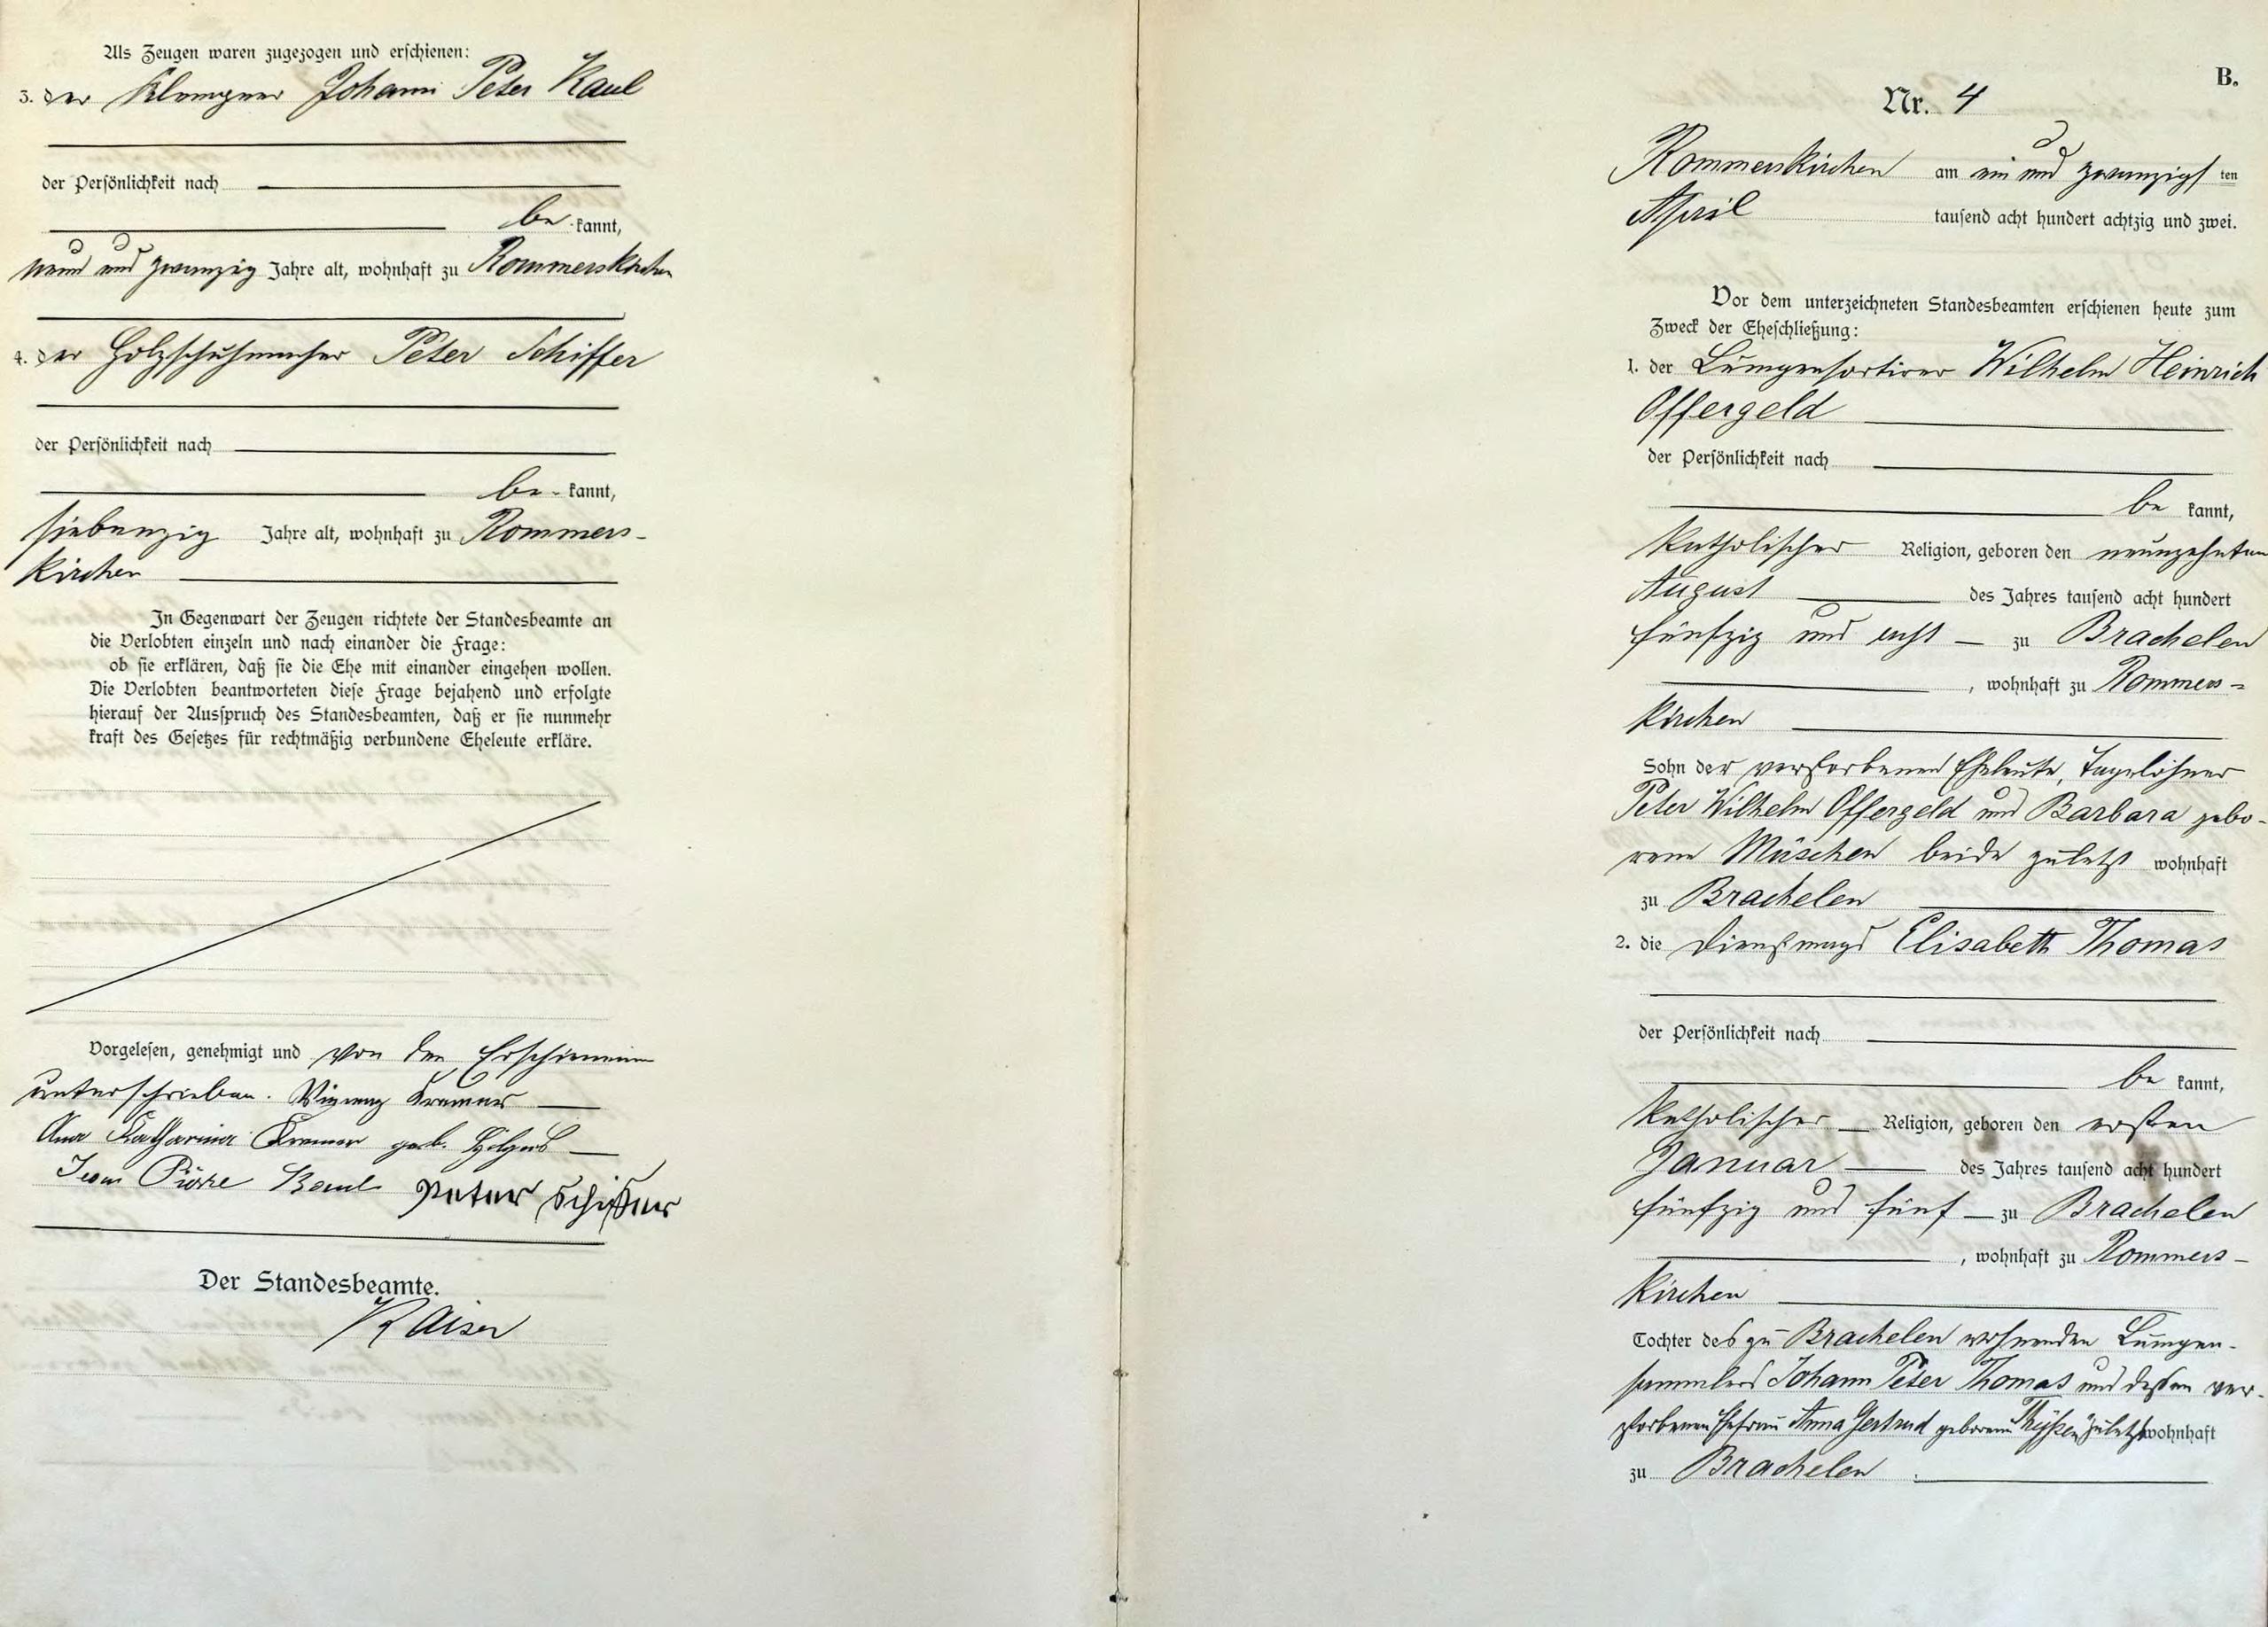 Als Zeugen waren zugezogen und erschienen:
3. der Klempner Johann Peter Kaul
der Persönlichkeit nach
be kannt,
neun und zwanzig Jahre alt, wohnhaft zu Rommerskirchen
4. der Holzschuhmacher Peter Schiffer
der Persönlichkeit nach
be- kannt,
siebenzig Jahre alt, wohnhaft zu Rommers-
kirchen
In Gegenwart der Zeugen richtete der Standesbeamte an
die Verlobten einzeln und nach einander die Frage:
ob sie erklären, daß sie die Ehe mit einander eingehen wollen.
Die Verlobten beantworteten diese Frage bejahend und erfolgte
hierauf der Ausspruch des Standesbeamten, daß er sie nunmehr
kraft des Gesetzes für rechtmäßig verbundene Eheleute erkläre.
Vorgelesen, genehmigt und von den Erschienenen
unterschrieben. Kremer
Katharina Kremer geb. Hilgers
Peter Schiffer
Der Standesbeamte.
Kaiser
B.
Nr. 4
Rommerskirchen am ein und zwanzigsten
April tausend acht hundert achtzig und zwei.
Vor dem unterzeichneten Standesbeamten erschienen heute zum
Zweck der Eheschließung:
1. der Lumpensortirer Wilhelm Heinrich
Offergeld
der Persönlichkeit nach
be kannt,
katholischer Religion, geboren den neunzehnten
August des Jahres tausend acht hundert
fünfzig und acht zu Brachelen
, wohnhaft zu Rommers-
kirchen
Sohn der verstorbenen Eheleute, Tagelöhner
Peter Wilhelm Offergeld und Barbara gebo-
rene Müschen beide zuletzt wohnhaft
zu Brachelen
2. die Dienstmagd Elisabeth Thomas
der Persönlichkeit nach
be kannt,
katholischer Religion, geboren den ersten
Januar des Jahres tausend acht hundert
fünfzig und fünf zu Brachelen
, wohnhaft zu Rommers-
kirchen
Tochter des zu Brachelen wohnenden Lumpen-
sammlers Johann Peter Thomas und dessen ver-
storbenen Ehefrau Anna Gertrud geborene zuletzt wohnhaft
zu Brachelen